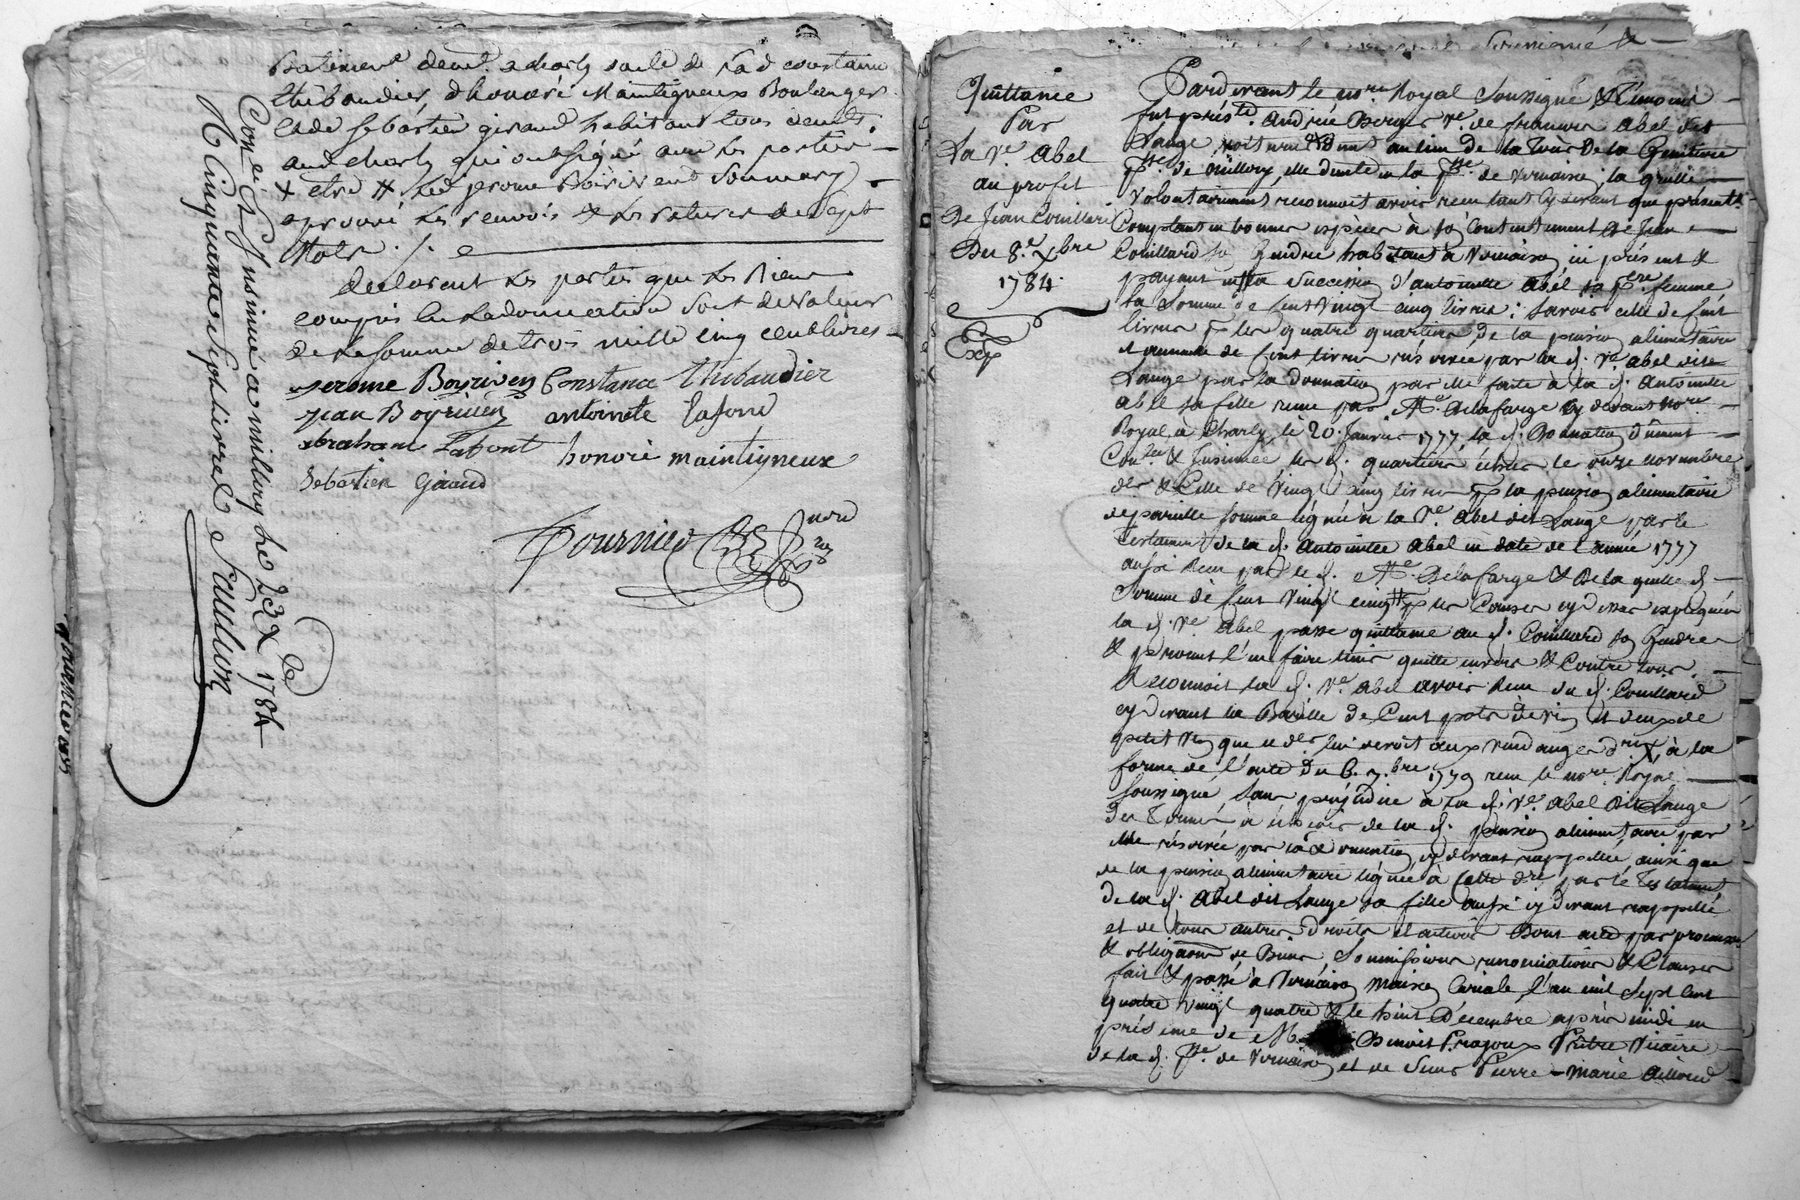 Batiment demt. a charly sarle de Sad constance
thibaudier, d'honnoré Maintigneux Boulanger
et de sebastien giraud habitant tous demt.
aud charly qui ont signé avec les parties
x etre # led jerome Boiriven
aprouvé les renvois & les ratures de sept
Mots ./.
declarent les parties que les Biens
compris en la donnation sont de valeur
de la somme de trois mille cinq cent livres
jerome Boyriven Constance thibaudier
jean Boyriven antoinete lafond
abraham Lafont honoré maintigneux
Sebastien Giraud
Fournier
Con. et insinué a millery le 23 Xbre 1784
R Cinquante sept livres
fournier
Quittance
Par
La Ve. Abel
au profit
de Jean Couillard
Du 8e. Xbre
1784.
Exp
Pardevant le nore Royal soussigné &
fut pnte. andrée Berger ve. de francois Abel dit
Lange au lieu de la Tour de la
psse. de millery, elle dite en la psse. de vernaison, la quelle
volontairement reconnoit avoir recu tant cy devant que présentt.
Comptant en bonnes especes à so contentement de Jean
Couillard so Gendre habitant à vernaison ici présent &
payant en la succession d'antoinette Abel sa femme
la somme de cent vingt cinq livres : savoir celle de cent
livres pr les quatre quartiers de la pension alimentaire
et annuelle de cent livres réservée par la d. ve. abel dite
Lange par la donnation par elle faite à la d. antoinette
abel sa fille recue par Me. Delafarge cy devant nore
Royal à Charly, le 20. Janvier 1777. la d. Donnation dûment
Conlée & Insinuée les d. quartiers échus le onze novembre
der & Celle de vingt cinq livres pr la pension alimentaire
de pareille somme léguée à la Ve. Abel dit Lange par le
testament de la d. antoinette abel en date de l'année 1777
aussi recu par le d. Me. Delafarge & de la quelle d.
somme de cent vingt cinq # pr les causes cy dessus expliquées
la d. ve. Abel passe quittance au d. Couillard so Gendre
& promet l'en faire tenir quitte envers & contre tous.
Reconnoit la d. Ve. abel avoir recu du d. Couillard
cy devant la Barille de Cent pots de vin et deux de
petit vin que ce der lui devoit aux vendanges à la
forme de l'acte du 6. 7.bre 1779 recu le nore Royal
soussigné, sans préjudice à la d. Ve. Abel dit Lange
des Termes à échoir de la d. pension alimentaire par
elle réservée par la donnation cy devant rappellée, ainsi que
de la pension alimentaire léguée à cette dre par le Testament
de la d. Abel dit Lange sa fille aussi cy devant rappellé
et de tous autres droits et actions Dont acte par promesses
& obligaons de Biens, soumissions renonciations & Clauses
fait & passé à Vernaison maison Curiale, l'an mil sept cent
quatre vingt quatre & le huit Décembre après midi en
présence de Benoit Prajoux Prêtre Vicaire
de la d. psse. de Vernaison et de sieur Pierre-Marie